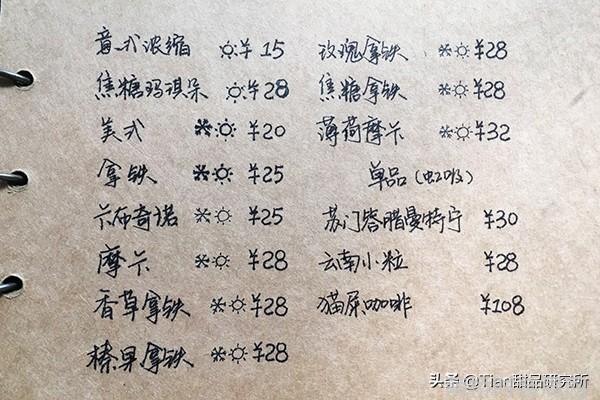 意式浓缩 ☼ ¥15
焦糖玛琪朵 ☼ ¥28
美式 ❄☼ ¥20
拿铁 ❄☼ ¥25
卡布奇诺 ❄☼ ¥25
摩卡 ❄☼ ¥28
香草拿铁 ❄☼ ¥28
榛果拿铁 ❄☼ ¥28
玫瑰拿铁 ❄☼ ¥28
焦糖拿铁 ❄☼ ¥28
薄荷摩卡 ❄☼ ¥32
单品
苏门答腊曼特宁 ¥30
云南小粒 ¥28
猫屎咖啡 ¥108
头条 @Tian甜品研究所